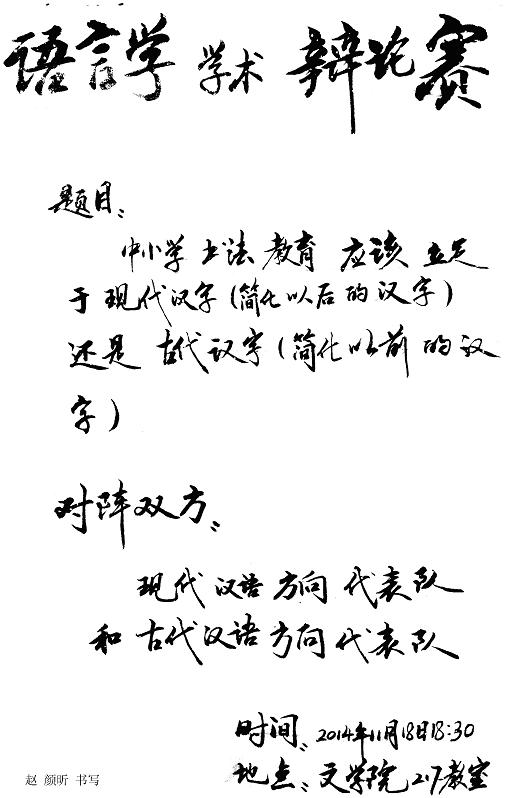 语言学 学术 辩论赛
题目：
中小学 书法 教育 应该 立足
于 现代汉字（简化以后的汉字）
还是 古代汉字（简化以前的汉
字）
对阵双方：
现代汉语方向代表队
和古代汉语方向代表队
时间：2014年11月18日18:30
地点：文学院 217教室
赵 颜昕 书写